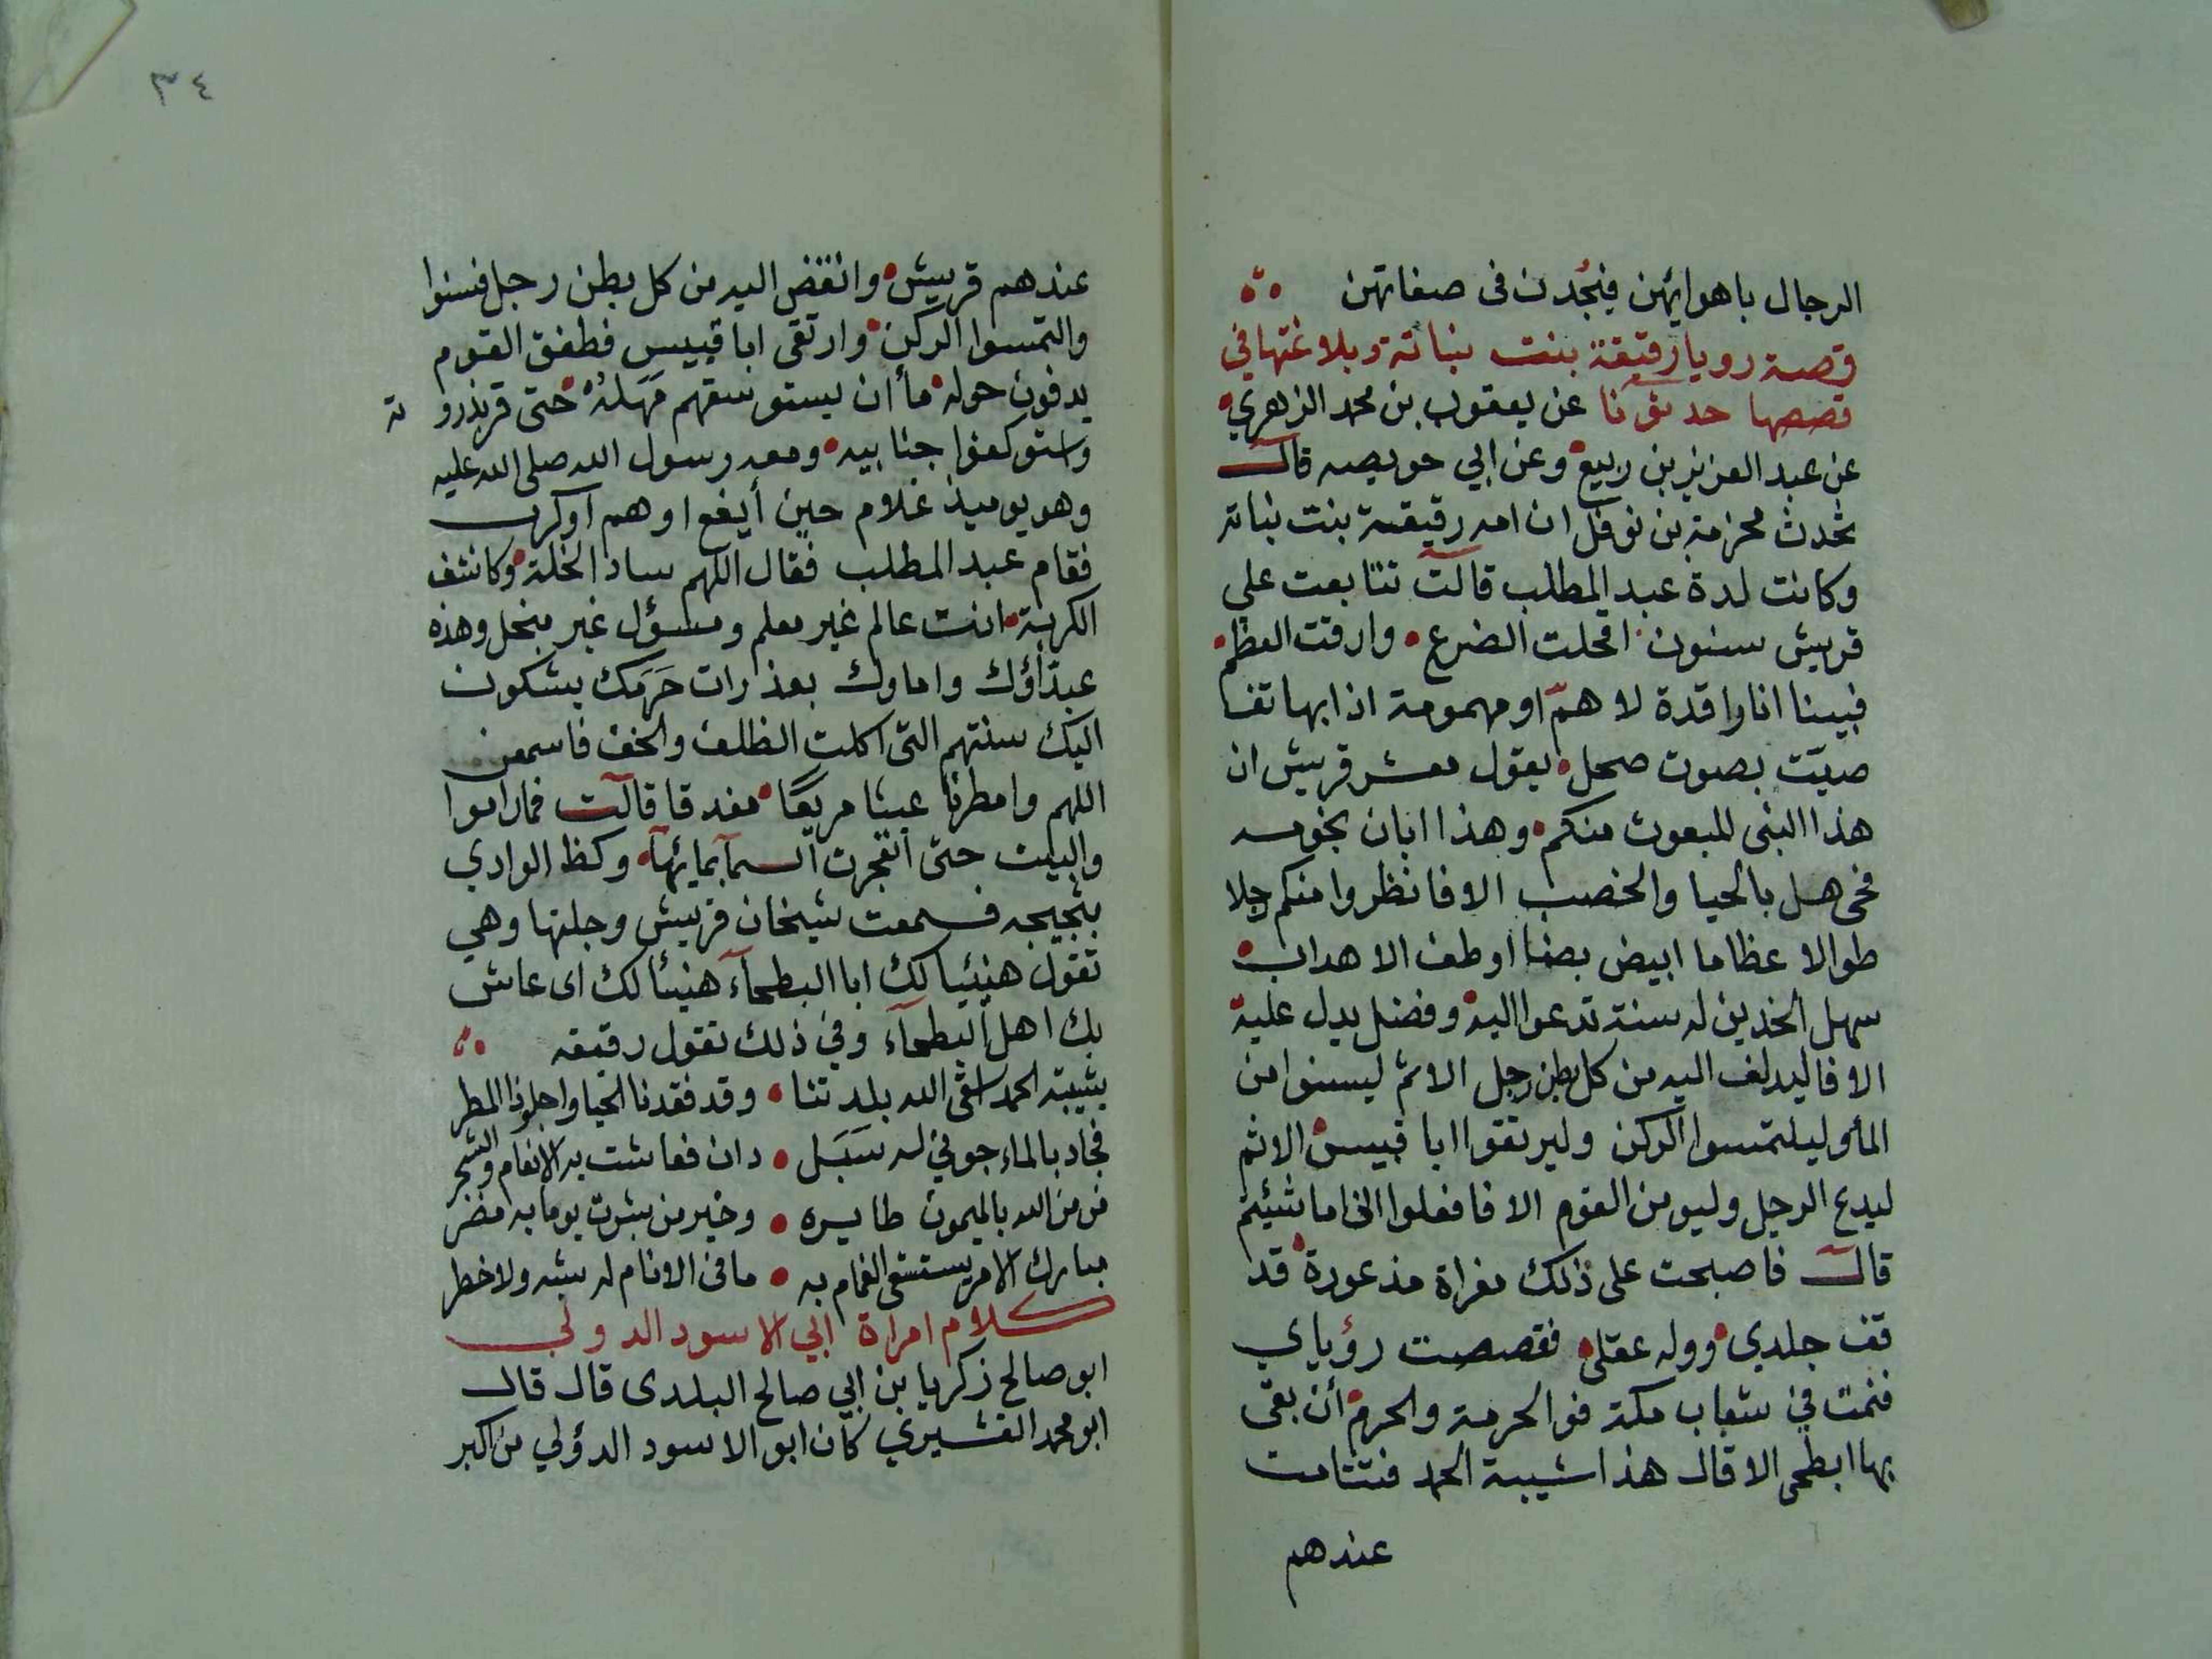 الرجال باهوائهن فيجدن في صفاتهن
قصة رويا رقيقة بنت نباتة وبلاغتها في
قصصها حدثنا عن يعقوب بن محمد الزهري
عن عبد العزيز بن ربيع وعن ابي حويصه قال
تحدث محزمة بن نوفل ان امه رقيقة بنت نباته
وكانت لدة عبد المطلب قالت تتابعت علي
قريش سنون اقحلت الضرع وارقت العظم
فبينا انا راقدة لاهم او مهمومة اذا بهاتف
صيت بصوت صحل يقول معشر قريش ان
هذا النبى المبعوث منكم وهذا ابان نجومه
فحى هل بالحيا والخصب الا فانظروا منكم رجلا
طوالا عظاما ابيض بضا اوطف الاهداب
سهل الخدين له سنة تدعوا اليه وفضل يدل عليه
الا فاليدلف اليه من كل بطن رجل الا ثم ليسنوا من
المأ وليلتمسوا الركن وليرتقوا ابا قبيس الا ثم
ليدع الرجل وليومن القوم الا فافعلوا اذا ما شيئتم
قالت فاصبحت على ذلك مفراة مذعورة قد
قف جلدي ووله عقلي فقصصت رؤياي
فنمت في شعاب مكة فوا الحرمة والحرم أن بقى
بها ابطحى الا قال هذا شيبة الحمد فتتامت
عندهم
٣٤
عندهم قريش وانقض اليه من كل بطن رجل فسنوا
والتمسوا الركن وارتقى ابا قبيس فطفق القوم
يدفون حوله مأ ان يستوسقهم مهله حتى قربذروته
واستوكفوا جنابيه ومعه رسول الله صلى الله عليه
وهو يوميذ غلام حين أيفع او هم اوكرب
فقام عبد المطلب فقال اللهم ساد الخلة وكاشف
الكربة انت عالم غير معلم ومسؤل غير مبخل وهذه
عبدّاؤك واماوك بعذرات حَرَمك يشكون
اليك سنتهم التى اكلت الظلف والخف فاسمعن
اللهم وامطرنا غيثا مريعًا مغدقا قالت فما راموا
والبيت حتى انفجرت السمآ بمائها وكظ الوادي
بثجيجه فسمعت شيخان قريش وجلتها وهي
تقول هنيئيا لك ابا البطحآء هنيئا لك اى عاش
بك اهل البطحآء وفي ذلك تقول رقيقه
بشيبة الحمد اسقى الله بلدتنا وقد فقدنا الحيا واجلوذ المطر
فجاد بالماء جوني له سَبَل دان فعاشت به الانعام والشجر
من من الله بالميمون طايره وخير من بشرت يوما به مضر
مبارك الامر يستسقى الغمام به ما فى الانام له شبه ولا خطر
كلام امراة ابي الاسود الدولي
ابو صالح زكريا بن ابي صالح البلدى قال قال
ابو محمد القشيري كان ابو الاسود الدؤلي من اكبر